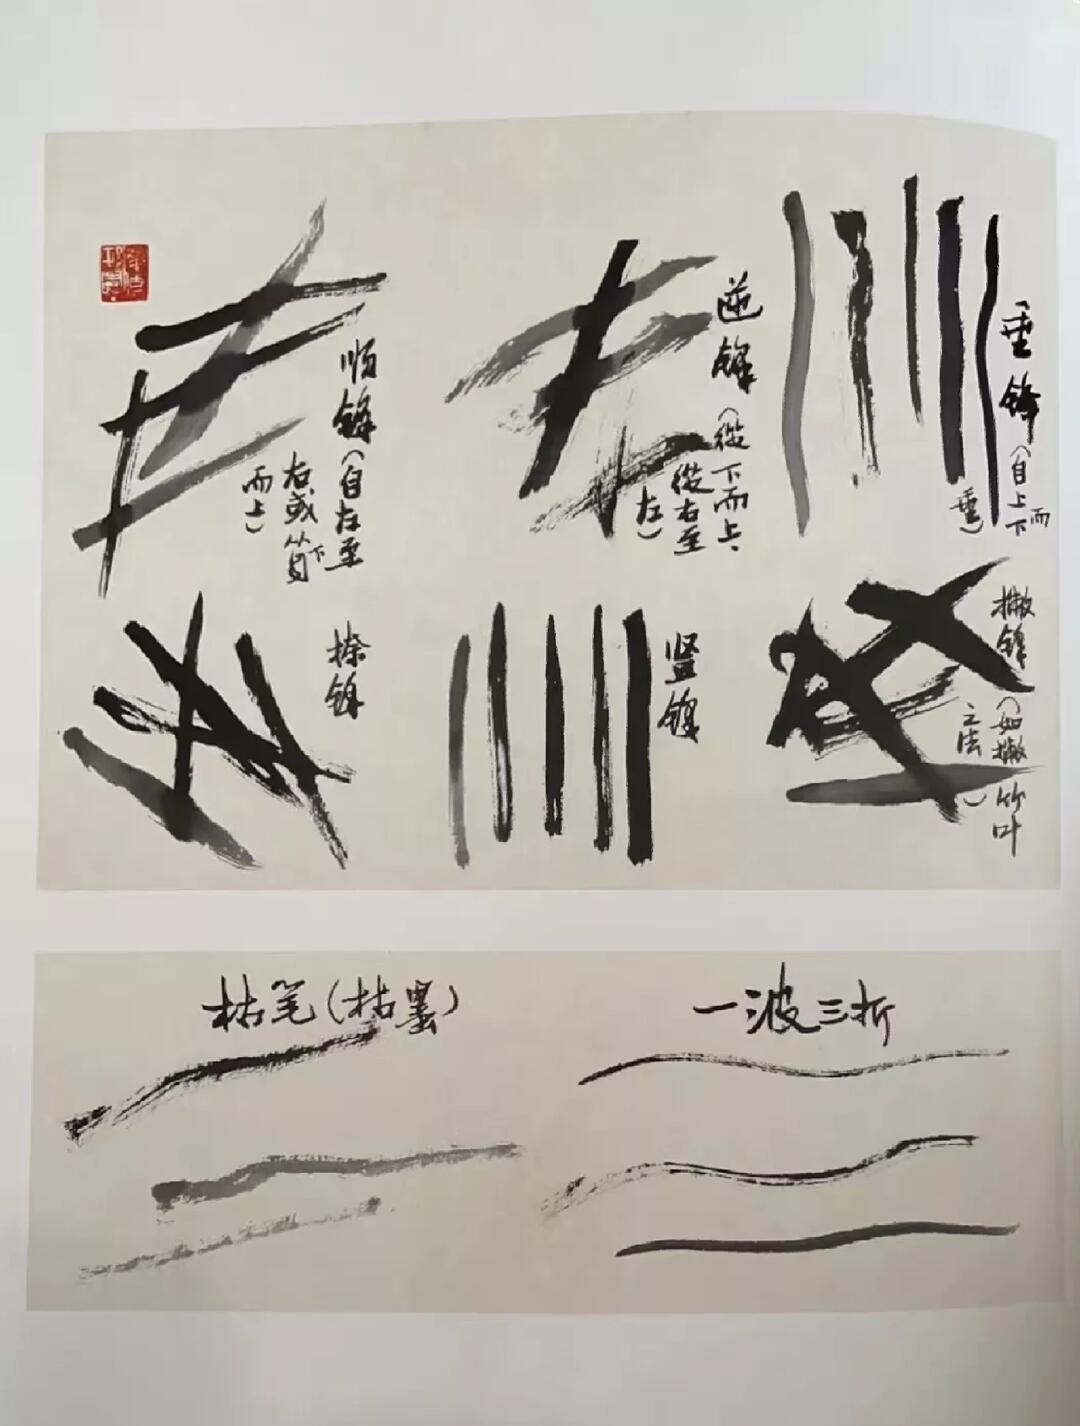 顺锋（自左至
右或
而上）
逆锋（從下而上、
從右至
左）
垂锋（自上而下
垂）
捺锋
竖锋
撇锋（如撇竹叶
之法）
枯笔（枯墨）
一波三折